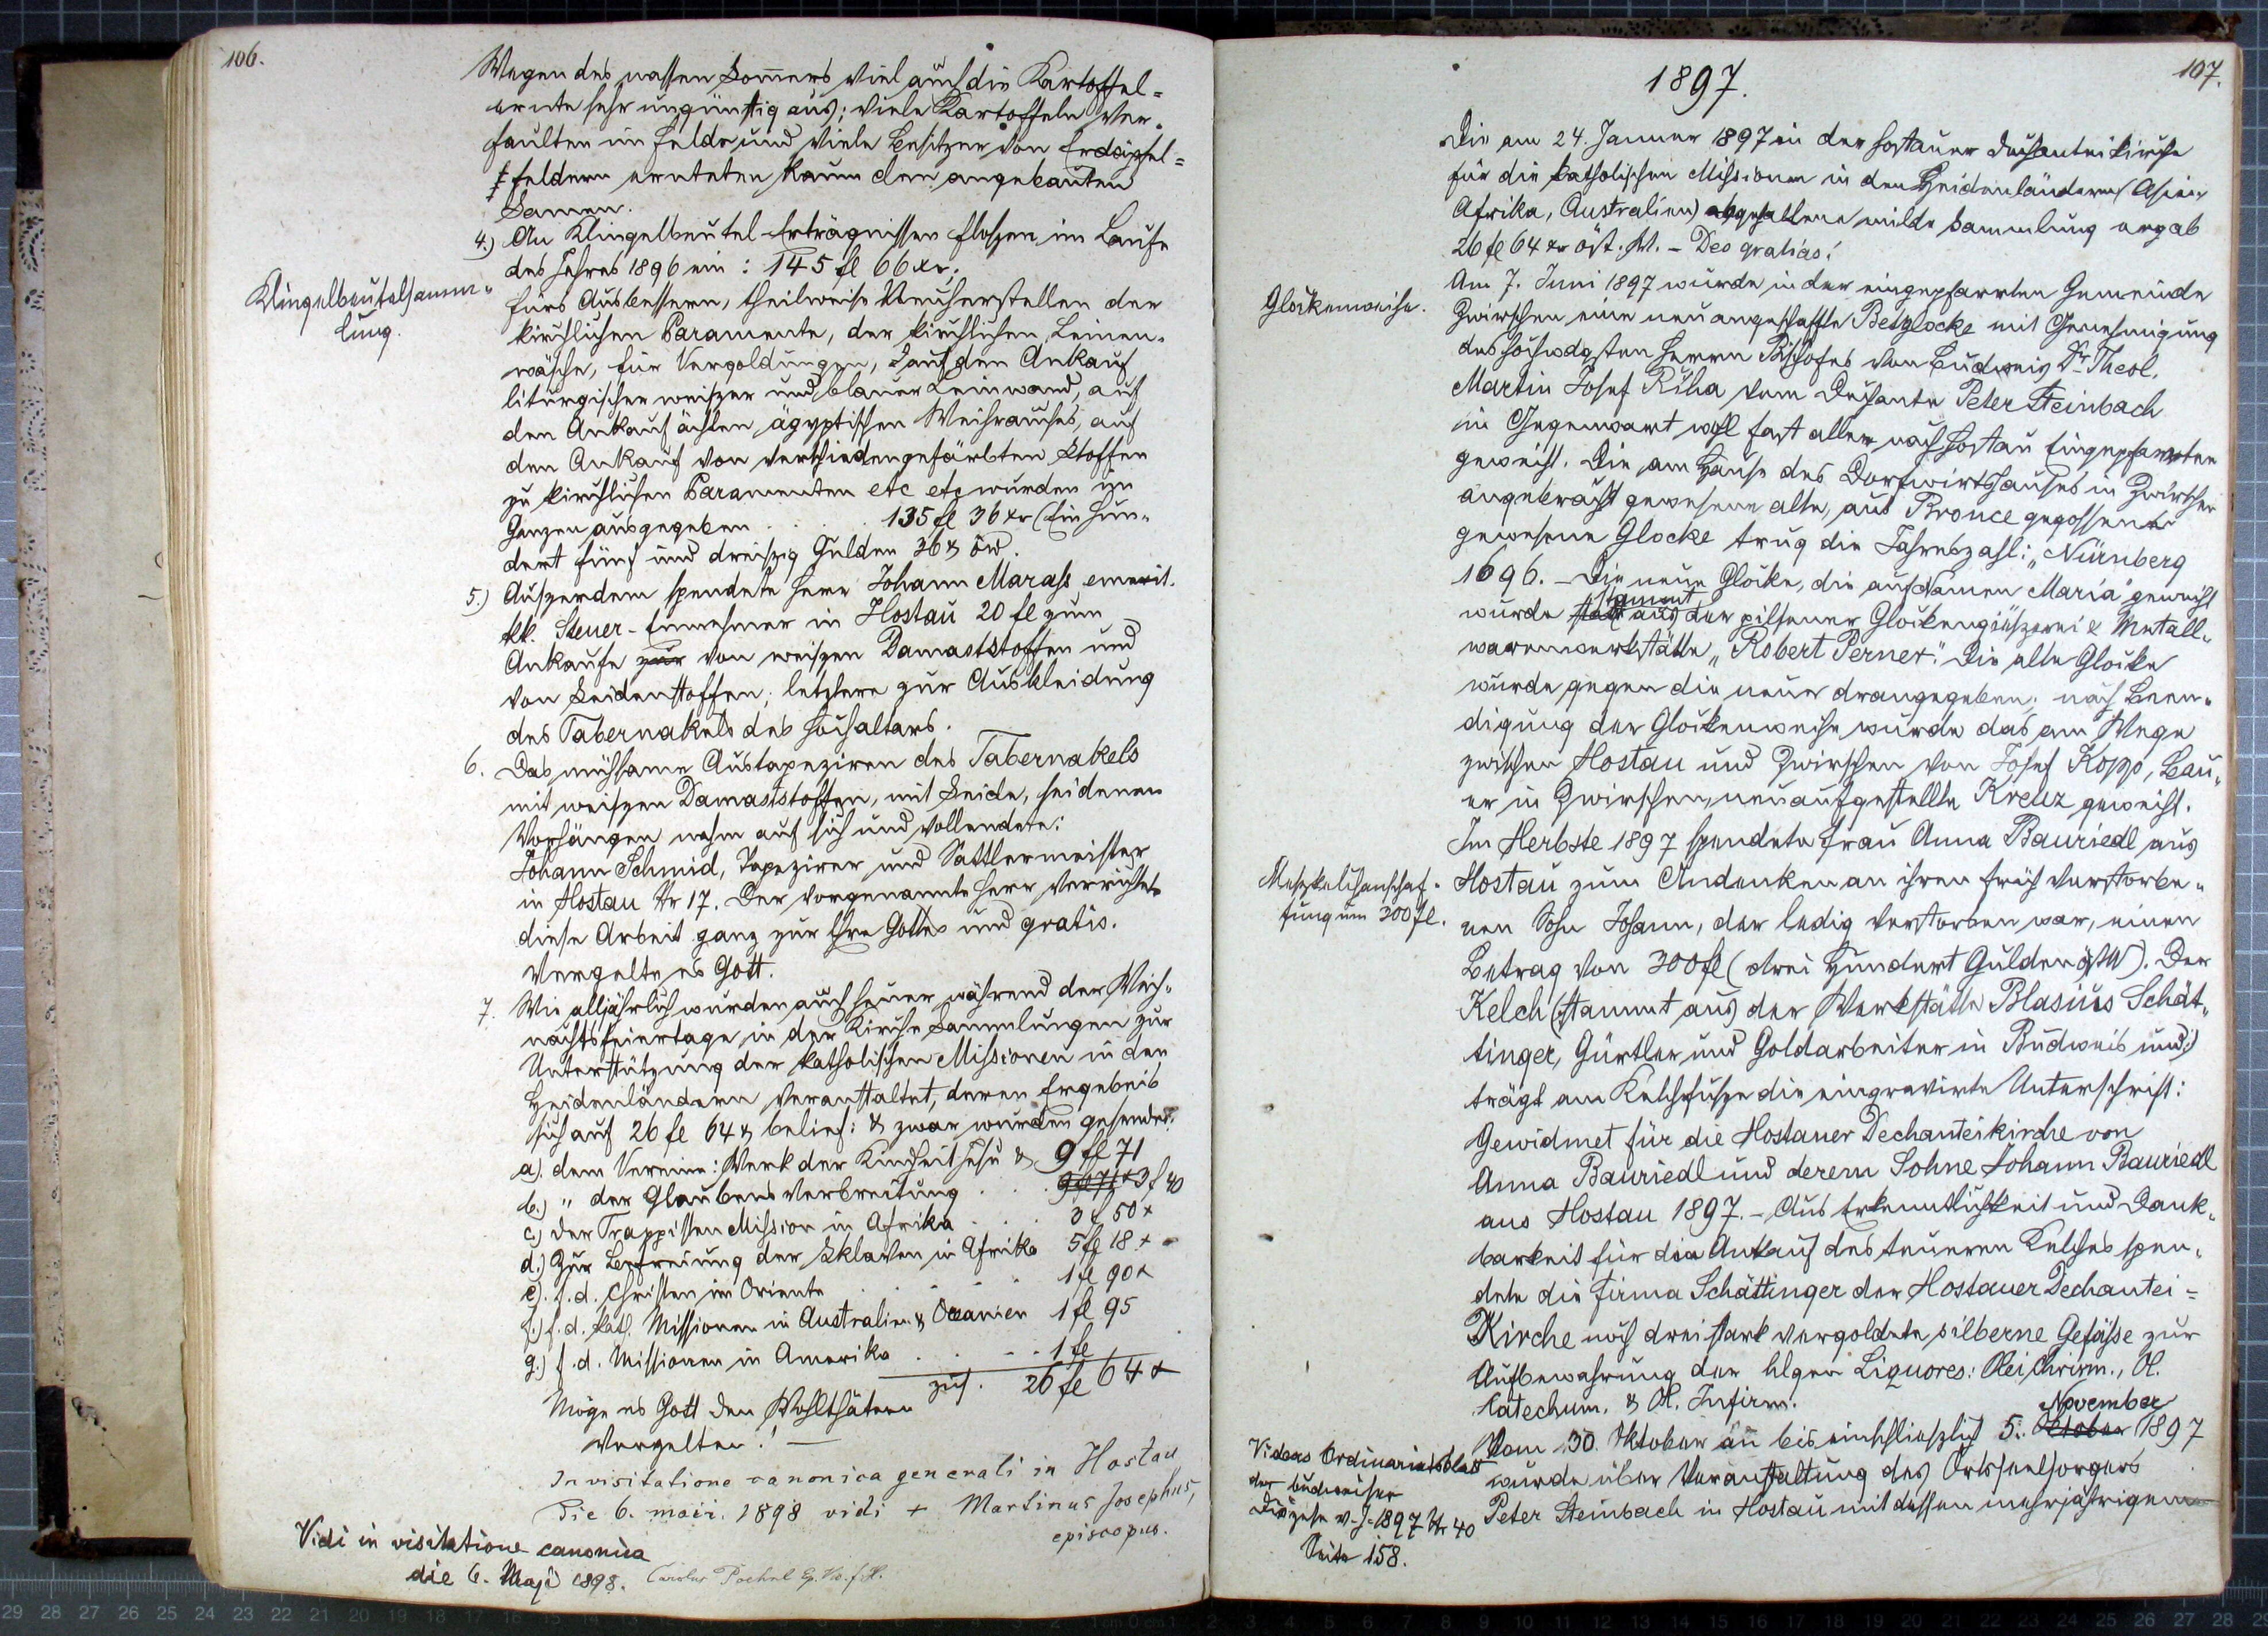 106.
Wegen des nassen Sommers viel auch die Kartoffel=
ernte sehr ungünstig aus; viele Kartoffeln ver=
faulten im Felde und viele Besitzer von Erdäpfel=
feldern ernteten kaum den angebauten
Samen.
4.) An Klingelbeutel-Erträgnissen floszen im Laufe
des Jahres 1896 ein: 145 fl 66 xr.
Klingelbeutelsamm=
lung.
fürs Ausbessern, theilweise Neuherstellen der
kirchlichen Paramente, der kirchlichen Leinen=
wäsche, für Vergoldungen, auf den Ankauf
liturgischer weiszer und blauer Leinwand, auf
den Ankauf ächten, ägyptischen Weihrauches, auf
den Ankauf von verschiedengefärbten Stoffen
zu kirchlichen Paramenten etc etz wurden im
Ganzen ausgegeben . . . 135 fl 36 xr (Ein Hun=
dert fünf und dreiszig Gulden 36 x öw.
5.) Auszerdem spendete Herr Johann Marass, emerit.
kk. Steuer-Einnehmer in Hostau 20 fl zum
Ankaufe zur von weiszen Damaststoffen und
von Seidenstoffen; letztere zur Auskleidung
des Tabernakels des Hochaltars.
6. Das mühsame Austapeziren des Tabernakels
mit weiszen Damaststoffen, mit Seide, seidenen
Vorhängen nahm auf sich und vollendete:
Johann Schmid, Tapezirer und Sattlermeister
in Hostau Nr 17. Der vorgenannte Herr verrichtete
diese Arbeit ganz zur Ehre Gottes und gratis.
Vergelte es Gott.
7. Wie alljährlich wurden auch heuer während der Weih=
nachtsfeiertage in der Kirche Sammlungen zur
Unterstützung der katholischen Missionen in den
Heidenländern veranstaltet, deren Ergebnis
sich auf 26 fl 64 x belief: & zwar wurden gesendet:
a). dem Vereine: Werk der Kindheit Jesu & 9 fl 71
b.) " der Glaubensverbreitung . . . 9 fl 71 x 3 f 40
c.) der Trappisten Mission in Afrika . . . 3 f 50 x
d.) Zur Befreiung der Sklaven in Afrika 5 fl 18 x
e). f. d. Christen im Oriente . . . 1 fl 90 x
f.) f. d. kath. Missionen in Australien & Ozeanien 1 fl 95
g.) f. d. Missionen in Amerika . . . 1 fl
zus. 26 fl 64 x
Möge es Gott den Wohlthätern
vergelten! —
In visitatione canonica generali in Hostau
Die 6. maii. 1898 vidi + Martinus Josephus,
episcopus.
Vidi in visitatione canonica
die 6. Maji 1898. Carolus
107.
1897.
Die am 24. Januar 1897 in der Hostauer Dechanteikirche
für die katholischen Missionen in den Heidenländern (Asien
Afrika, Australien) abgehaltene milde Sammlung ergab
26 fl 64 xr öst. W. – Deo gratias!
Glockenweihe.
Am 7. Juni 1897 wurde in der eingepfarrten Gemeinde
Zwirschen eine neuangeschaffte Betglocke mit Genehmigung
des hochwdgsten Herrn Bischofes von Budweis Dr Theol.
Martin Josef Říha vom Dechante Peter Steinbach
in Gegenwart wohl fast aller nach Hostau Eingepfarrten
geweiht. Die am Hause des Dorfwirtshauses in Zwirschen
angebracht gewesene alte, aus Bronce gegossen
gewesene Glocke trug die Jahreszahl: "Nürnberg
1696. – Die neue Glocke, die auf Namen Maria" geweiht
wurde stammt aus der pilsener Glockengiiszerei & Metall=
warenwerkstätte "Robert Perner". Die alte Glocke
wurde gegen die neue drangegeben; nach Been=
digung der Glockenweihe wurde das am Wege
zwischen Hostau und Zwirschen von Josef Kopp, Bau=
er in Zwirschen, neuaufgestellte Kreuz geweiht.
Im Herbste 1897 spendete Frau Anna Bauriedl aus
Meszkelchanschaf=
fung um 300 fl.
Hostau zum Andenken an ihren früh verstorbe=
nen Sohn Johann, der ledig verstorben war, einen
Betrag von 300 fl (drei Hundert Gulden östW). Der
Kelch (stammt aus der Werkstätte Blasius Schät=
tinger, Gürtler und Goldarbeiter in Budweis und:)
trägt am Kelchfusze die eingravirte Unterschrift:
Gewidmet für die Hostauer Dechanteikirche von
Anna Bauriedl und deren Sohne Johann Bauriedl
aus Hostau 1897. – Aus Erkenntlichkeit und Dank=
barkeit für die Ankauf des teueren Kelches spen=
dete die Firma Schättinger der Hostauer Dechantei=
Kirche noch drei stark vergoldete silberne Gefäße zur
Aufbewahrung der hlgen Liquores: Olei Chrism., Ol.
Catechum. & Ol. Infirm.
Vom 30. Oktober an bis einschlieszlich 5. Oktober November 1897
Videas Ordinariatsblatt
der budweiser
Diözese v. J. 1897 Nr 40
Seite 158.
wurde über Veranstaltung des Ortsseelsorgers
Peter Steinbach in Hostau mit dessen mehrjährigem